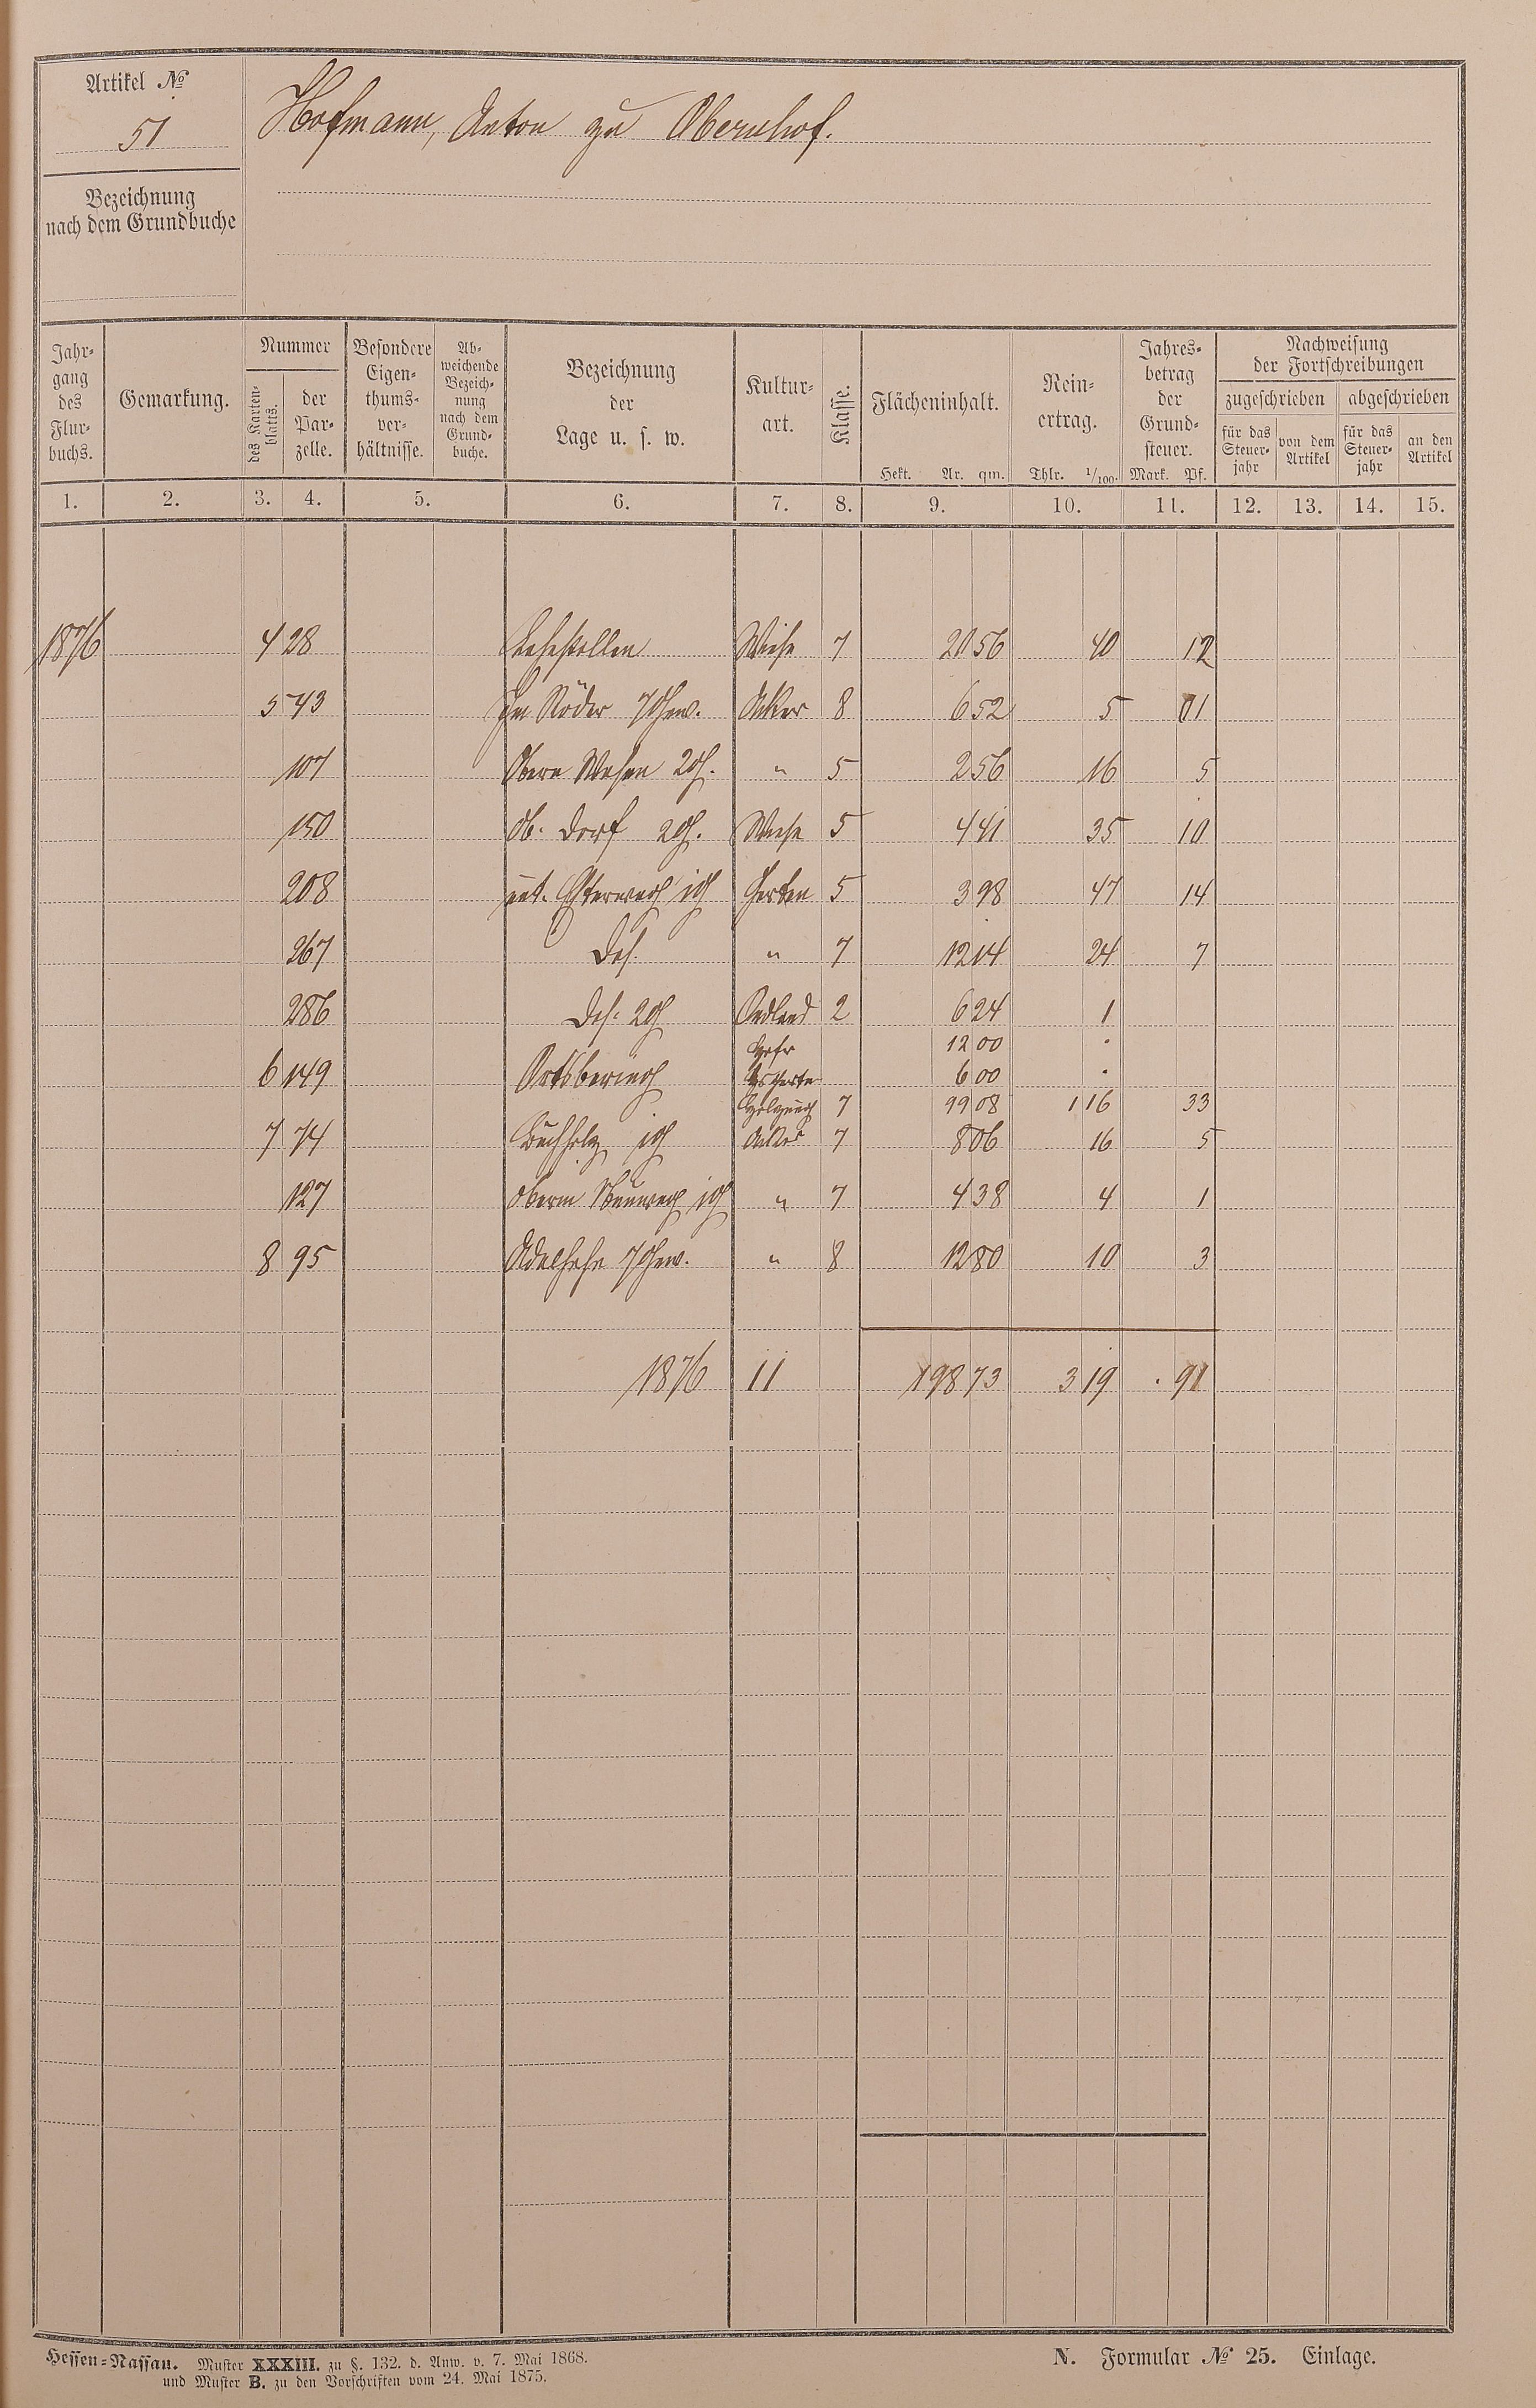 Artikel №
51
Hofmann, Anton zu Obernhof.
Bezeichnung
nach dem Grundbuche
Jahrgang des Flurbuchs.
Gemarkung.
Nummer
des Kartenblatts.
der Parzelle.
Besondere Eigenthumsverhältnisse.
Abweichende Bezeichnung nach dem Grundbuche.
Bezeichnung der Lage u. s. w.
Kulturart.
Klasse.
Flächeninhalt.
Hekt. Ar. qm.
Reinertrag.
Thlr. 1/100.
Jahresbetrag der Grundsteuer.
Mark. Pf.
Nachweisung der Fortschreibungen
zugeschrieben
abgeschrieben
für das Steuerjahr
von dem Artikel
für das Steuerjahr
an den Artikel
1. 2. 3. 4. 5. 6. 7. 8. 9. 10. 11. 12. 13. 14. 15.
1876 4 28 Wiese 7 20 56 40 12
5 43 Im Röder 7 Gew. Acker 8 6 52 5 1
107 Obern 2 " 5 2 56 16 5
150 Ob. Dorf 2 Wiese 5 4 41 35 10
208 unt. Garten 5 3 98 47 14
267 Das. " 7 12 14 24 7
286 Das. 2 Oedland 2 6 24 1
Hofr 12 00 .
6 149 Ortsbering Hsgarten 6 00 .
Holzung 7 99 08 1 16 33
7 74 Buchholz Acker 7 8 06 16 5
127 Oberm " 7 4 38 4 1
8 95 7 Gew. " 8 12 80 10 3
1876 11 1 98 73 3 19 . 91
Hessen-Nassau. Muster XXXIII. zu §. 132. d. Anw. v. 7. Mai 1868.
und Muster B. zu den Vorschriften vom 24. Mai 1875.
N. Formular № 25. Einlage.